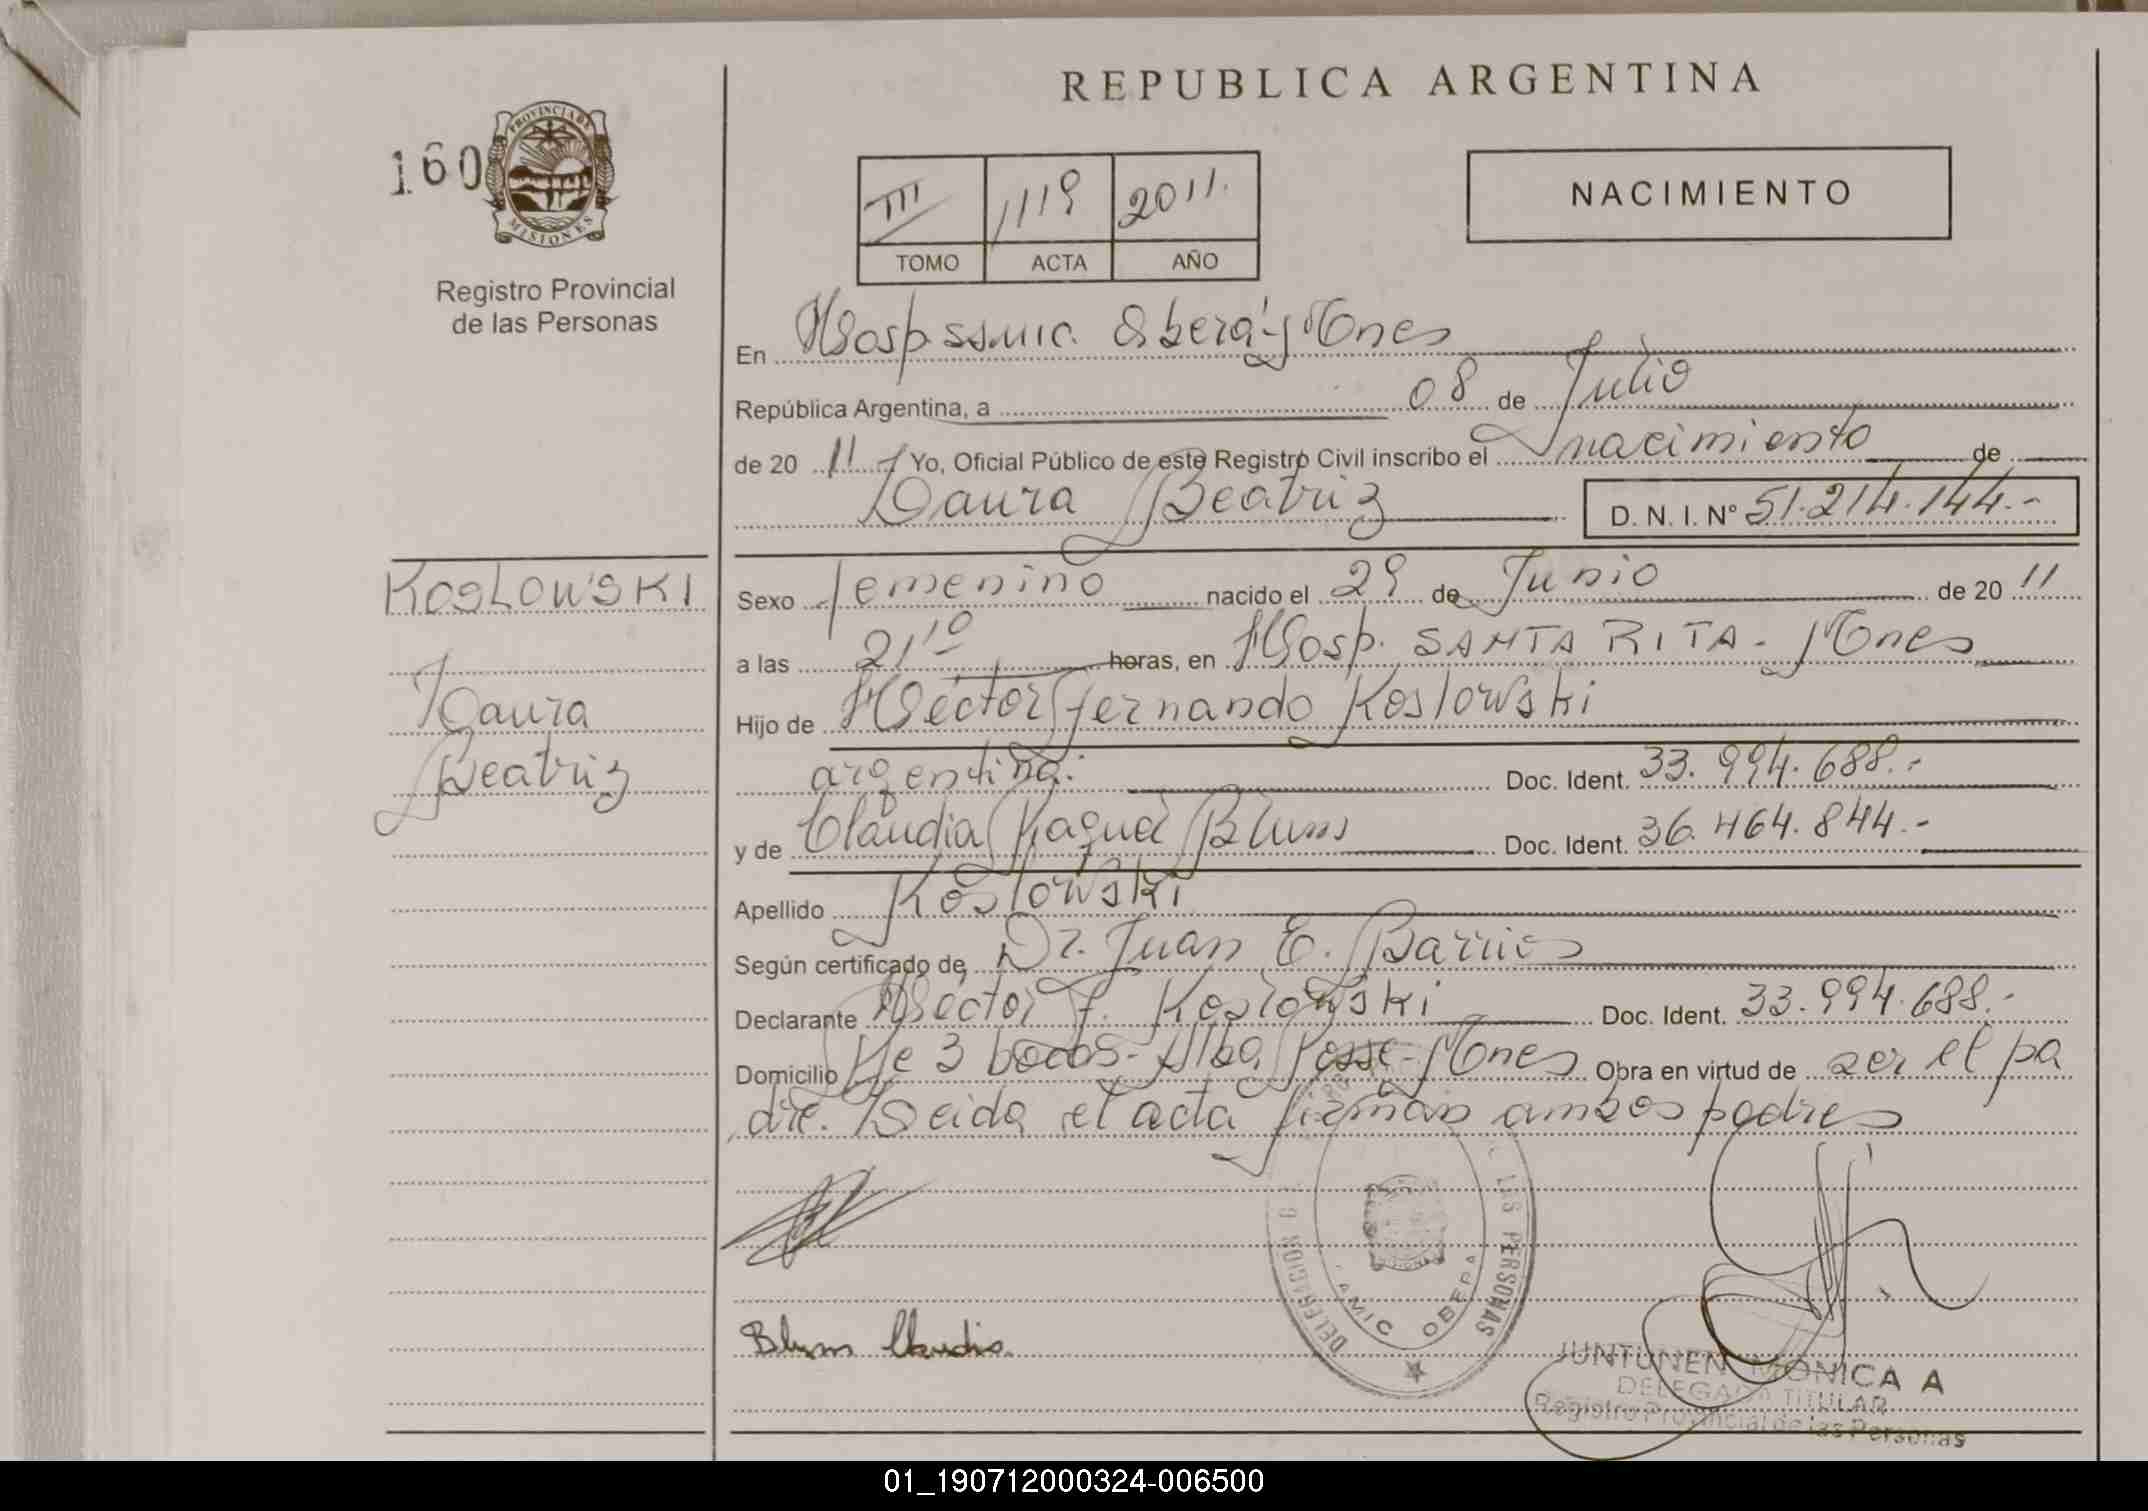 REPUBLICA ARGENTINA
160
PROVINCIA DE
MISIONES
Registro Provincial
de las Personas
III 1119 2011.
TOMO ACTA AÑO
NACIMIENTO
En Hosp. SSMIC. Oberá-Mnes
República Argentina, a 08 de Julio
de 20 11 Yo, Oficial Público de este Registro Civil inscribo el nacimiento de
Laura Beatriz D. N. I. Nº 51.214.144.-
KOSLOWSKI
Laura
Beatriz
Sexo femenino nacido el 29 de Junio de 20 11
a las 21:10 horas, en Hosp. SANTA RITA - Mnes
Hijo de Héctor Fernando Koslowski
argentina. Doc. Ident. 33.994.688.-
y de Claudia Raquel Blum Doc. Ident. 36.464.844.-
Apellido Koslowski
Según certificado de, Dr. Juan E. Barrios
Declarante Héctor F. Koslowski Doc. Ident. 33.994.688.-
Domicilio 3 bocas- Alba Posse-Mnes Obra en virtud de ser el pa
dre. Leida el acta firman ambos padres
DELEGACION LAS PERSONAS
OBERA
Blum Claudia
JUNTUNEN MONICA A
DELEGADA TITULAR
Registro Provincial de las Personas
01_190712000324-006500